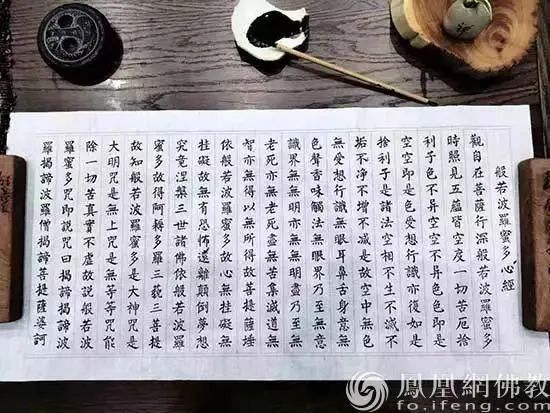 般若波羅蜜多心經
觀自在菩薩行深般若波羅蜜多
時照見五蘊皆空度一切苦厄捨
利子色不异空空不异色色即是
空空即是色受想行識亦復如是
捨利子是諸法空相不生不滅不
垢不净不增不减是故空中無色
無受想行識無眼耳鼻舌身意無
色聲香味觸法無眼界乃至無意
識界無無明亦無無明盡乃至無
老死亦無老死盡無苦集滅道無
智亦無得以無所得故菩提薩埵
依般若波羅蜜多故心無挂礙無
挂礙故無有恐怖遠離顛倒夢想
究竟涅槃三世諸佛依般若波羅
蜜多故得阿耨多羅三藐三菩提
故知般若波羅蜜多是大神咒是
大明咒是無上咒是無等等咒能
除一切苦真實不虛故説般若波
羅蜜多咒即説咒曰揭諦揭諦波
羅揭諦波羅僧揭諦菩提薩婆訶
鳳凰網佛教
fo.ifeng.com